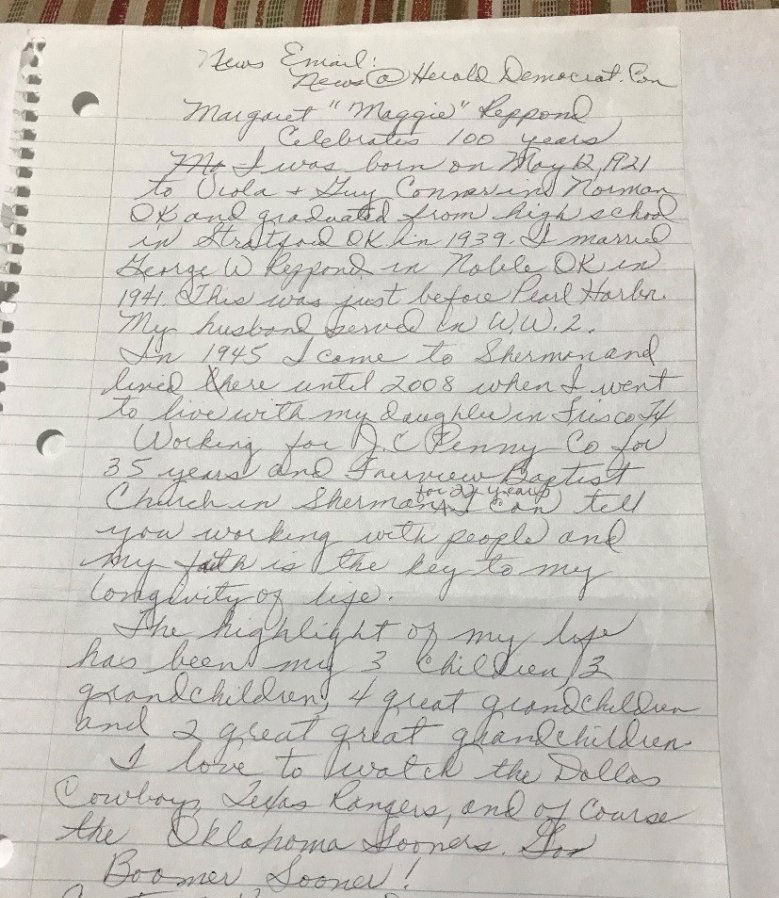 News Email:
News@HeraldDemocrat.Com
Margaret "Maggie" Reppond
Celebrates 100 years
I was born on May 12, 1921
to Viola + Guy in Norman
OK and graduated from high school
in Stratford OK in 1939. I married
George W Reppond in Noble OK in
1941. This was just before Pearl Harbor.
My husband served in W.W.2.
In 1945 I came to Sherman and
lived there until 2008 when I went
to live with my daughter in Frisco TX
Working for J.C Penny Co for
35 years and Fairview Baptist
Church in Sherman for 22 years I can tell
you working with people and
my faith is the key to my
longevity of life.
The highlight of my life
has been my 3 children, 3
grandchildren, 4 great grandchildren
and 2 great great grandchildren.
I love to watch the Dallas
Cowboys, Texas Rangers, and of course
the Oklahoma Sooners.
Boomer Sooner!